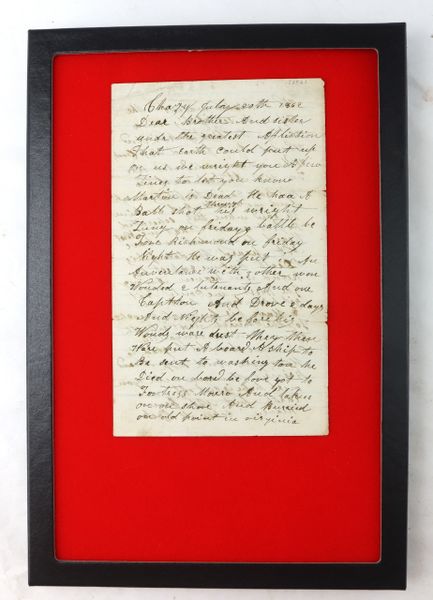 Chazy July 20th 1862
Dear Brother And sister
undr the greatest Afliction
That earth could put up
on us we wright you A few
Lines to let you know
Martin is Dead He had A
Ball shot through his wright
Lung on fridays battle be
fore richmond on friday
Night He was put in An
Amerlance with 2 other won
Wonded 2 lutenants And one
Captton And Drove 2 days
And Nights before his
Wonds ware drest They then
Ware put A board A ship to
Be sent to washing ton he
Died on bord be fore got to
Fortress Monro And taken
on shore And Burried
on old point in virginia